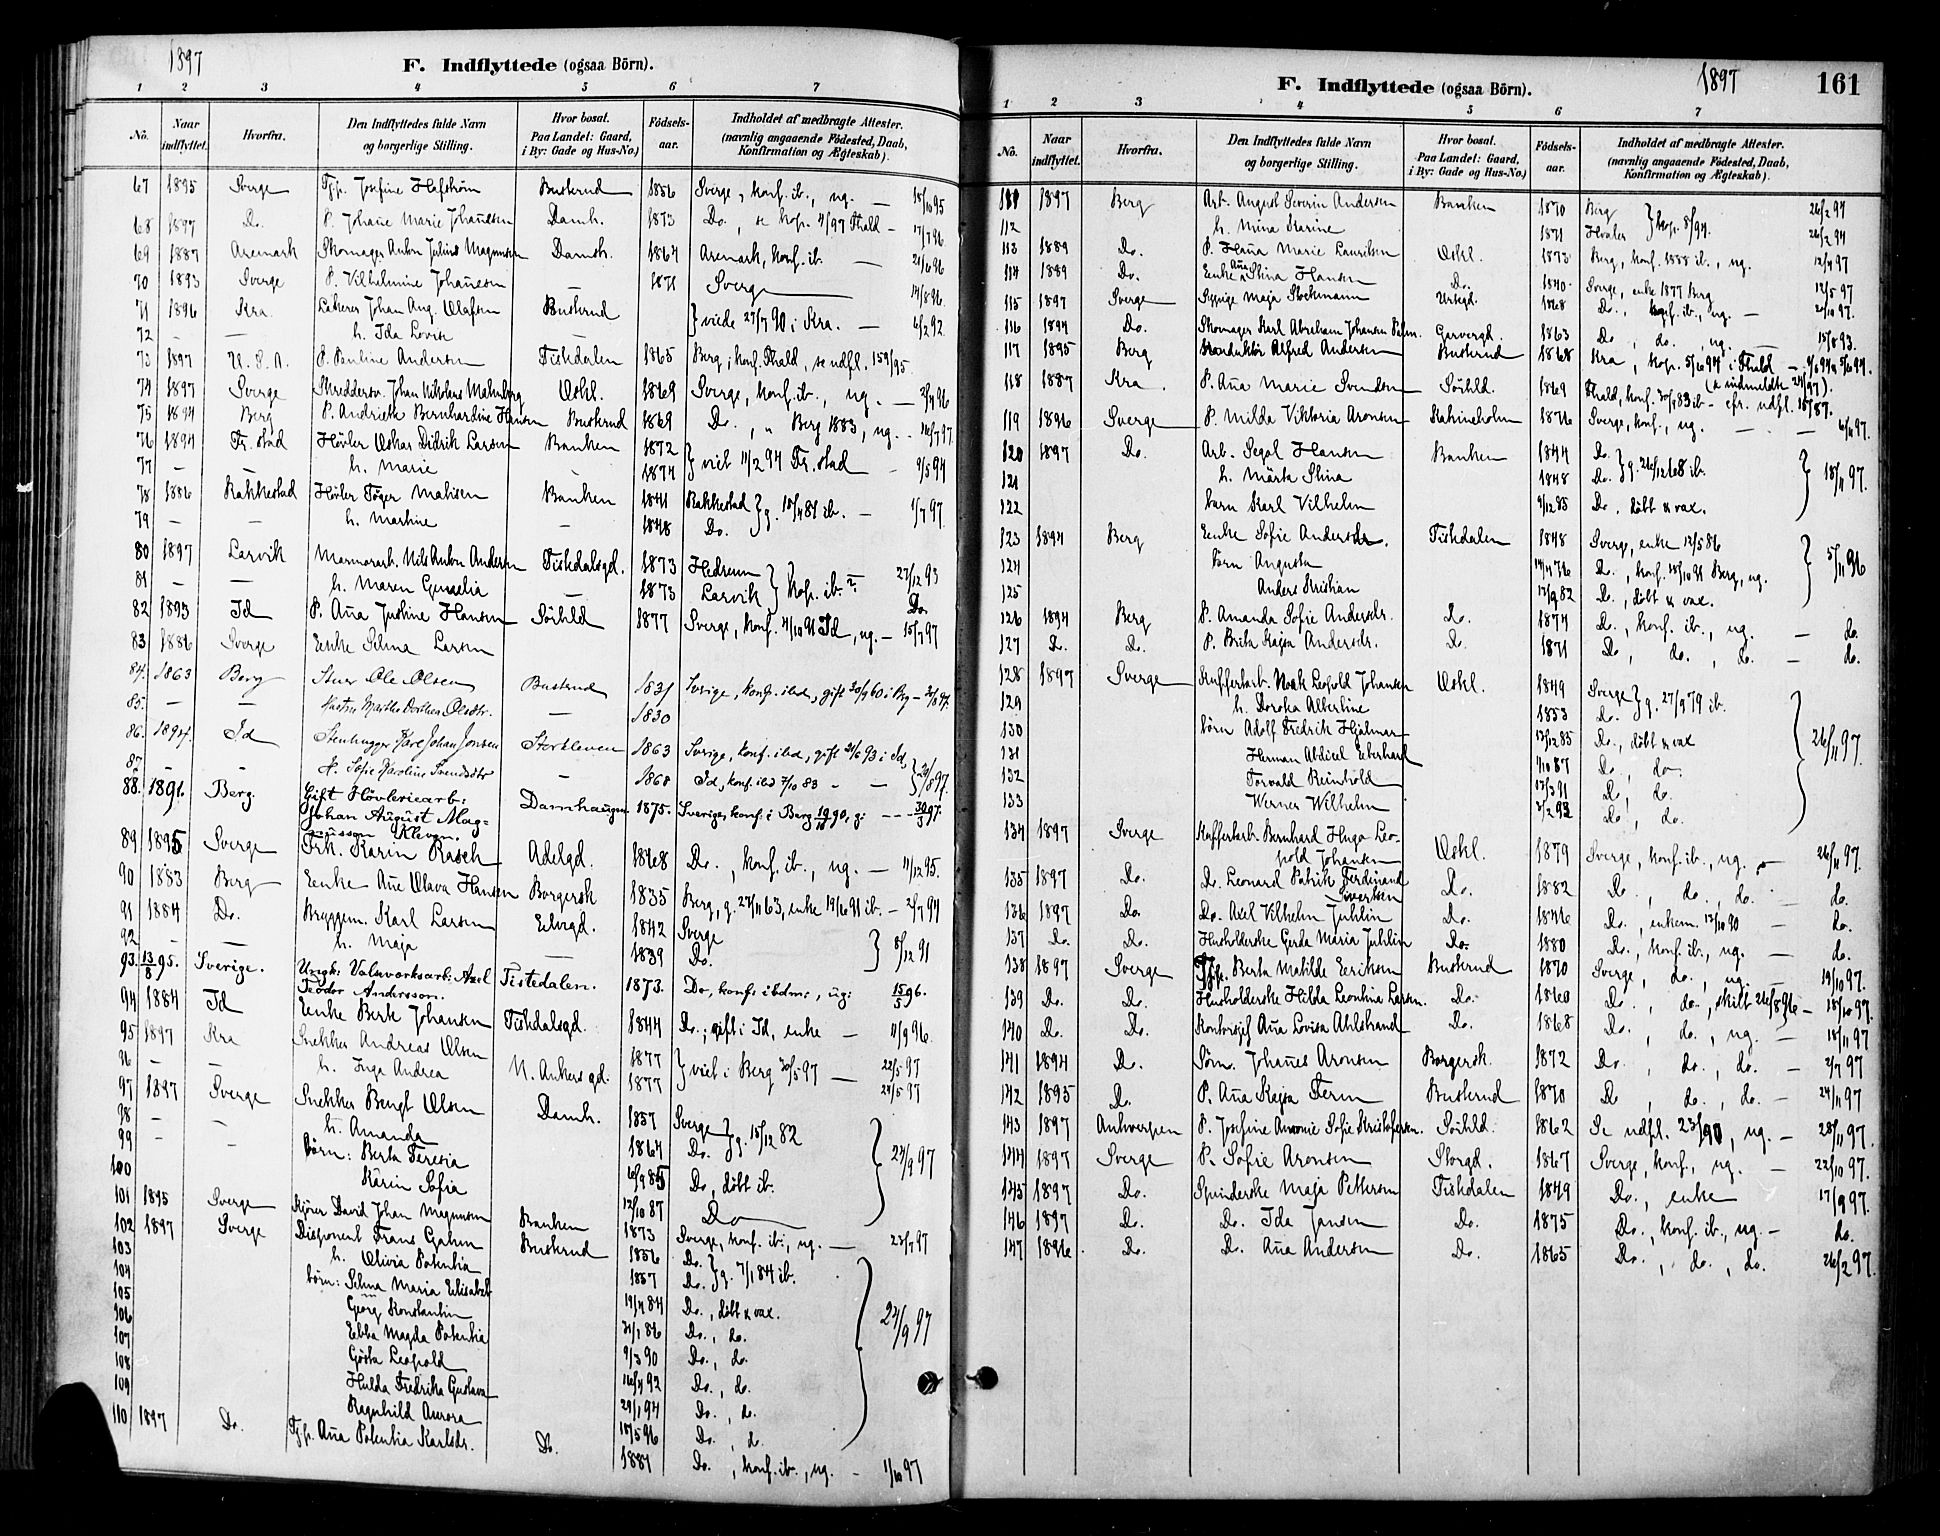 1897
F. Indflyttede (ogsaa Börn).
1 2 3 4 5 6 7
No. Naar indflyttet. Hvorfra. Den Indflyttedes fulde Navn og borgerlige Stilling. Hvor bosat. Paa Landet: Gaard, i By: Gade og Hus-No.) Fødsels-aar. Indholdet af medbragte Attester. (navnlig angaaende Födested, Daab, Konfirmation og Ægteskab).
67 1895 Sverge Tjp. Josefine Hofström Buskrud 1856 Sverge, konf. ib., ug. — 18/10 95
68 1897 Do. P. Johane Marie Johansen Damh. 1873 Do., se kop. 4/97 Fhald — 17/7 96
69 1887 Aremark Skomager Anton Julius Magnussen Damh. 1864 Aremark, konf. ib. — 21/6 96
70 1893 Sverge P. Vilhelmine Johansen — 1871 Sverge 14/8 96
71 1896 Kra. Lakerer Johan Aug. Olafsen Buskrud } viede 27/7 90 i Kra. — 4/2 92
72 — — h. Ida Lovise
73 1897 U.S.A. P. Pauline Andersen Tistedalen 1865 Berg, konf. Fhald, se udfl. 159/95
74 1897 Sverge Skreddersv. Johan Nikolaus Malmberg Oskl. 1869 Sverge, konf. ib., ug. —
75 1894 Berg P. Andriette Bernhardine Hansen Buskrud 1869 Do., " Berg 1883, ug. - 16/7 97
76 1894 Fr.stad Hövler Oskar Didrik Larsen Banken 1872 } viet 11/2 94 Fr.stad - 9/5 94
77 — — h. Marie — 1874
78 1886 Rakkestad Hövler Töger Mathisen Banken 1841 Rakkestad } g. 18/4 81 ib. — 1/7 97
79 — — h. Martine — 1848 Do.
80 1897 Larvik Marmorarb. Nils Anton Andersen Tistedalsgd. 1873 Hedrum } kop. ib. ? 27/12 93
81 — — h. Maren Gunelia — 1873 Larvik Do.
82 1893 Id P. Ana Justine Hansen Söihld 1877 Sverge, konf. 4/10 91 Id, ug. — 15/7 97
83 1886 Sverge Enke Selma Larsen
84. 1863 Berg Stuer Ole Olsen Buskrud 1831 Sverige, konf. ibd., gift 30/9 60 i Brg —
85. — — Hustru Marthe Dorthea Olsdtr. — 1830
86. 1894. Id Stenhugger Karl Johan Jonsen Storkleven 1863 Sverige, konf. ibd., gift 24/6 93 i Id,
87. — — H. Sofie Karoline Svendsdtr — 1868 Id, konf. ibd 7/10 83 — —
88. 1896 Berg. Gift Hövleriearb: Johan August Magnusson Kleven. Damhaugen 1875. Sverige, konf: i Berg 19/10 90, g: — — 30/3 97.
89 1895 Sverge Frk. Karin Rasch Adelgd. 1868 Do., konf. ib., ug. — 11/12 95.
90 1883 Berg Enke Ane Olava Hansen Borgersk 1835 Berg, g. 27/11 63, enke 19/6 91 ib. — 2/7 94
91 1884 Do. Bryggem. Karl Larsen Elvegd. 1842 Sverge } 8/12 91
92 — — h. Maja — 1839 Do.
93. 13/8 95. Sverige. Ungk: Valsverksarb: Axel Teodor Andersson. Tistedalen. 1873. Do, konf: ibdm:, ug: 15/5 96.
94 1884 Id Enke Berte Johansen Tistedalsgd. 1844 Do., gift i Id, enke — 11/9 96.
95 1897 Kra Snekker Andreas Olsen N. Ankers gd. 1877 } viet i Berg 30/5 97 — 22/5 97
96 — — h. Inga Andrea 1877 24/5 97
97 1897 Sverge Snekker Bengt Olsen Damh. 1857 Sverge } g. 15/12 82 } 24/9 97
98 — — h. Amanda 1864 Do.
99 börn: Berta Teresia 16/9 85 Do., döbt ib.
100 Karin Sofia 12/10 87 Do
101 1895 Sverge Kjörer David Johan Magnusen Banken 1873 Sverge, konf. ib., ug. — 23/7 97
102 1897 Sverge Disponent Frans Gahm Buskrud 1856 Do. } g. 7/1 84 ib. } 24/9 97
103 h. Olivia Potentia 1857 Do.
104 börn: Selma Maria Elisabet 19/4 84 Do., döbt & vax.
105 Georg Konstantin 31/1 86 Do., do.
106 Ebba Magda Potentia 9/3 90 Do., do.
107 Gösta Leopold 16/4 92 Do., do.
108 Hulda Fredrika Gustava 29/1 94 Do., do.
109 Ragnhild Aurora 18/5 96 Do., do.
110 1897 Do. Tjp. Ana Potentia Karlsdr. Do. 1881 Do., konf. ib., ug. — 1/10 97
1897 161
F. Indflyttede (ogsaa Börn).
1 2 3 4 5 6 7
No. Naar indflyttet. Hvorfra. Den Indflyttedes fulde Navn og borgerlige Stilling. Hvor bosat. Paa Landet: Gaard, i By: Gade og Hus-No.) Fødsels-aar. Indholdet af medbragte Attester. (navnlig angaaende Födested, Daab, Konfirmation og Ægteskab).
111 1897 Berg Arb. August Severin Andersen Banken 1870 Berg } kop. 8/94. 26/2 94
112 h. Mina Karine 1871 Hvaler 26/2 94
113 1889 Do. P. Hana Marie Lauritsen Oskl. 1873 Berg, konf. 1888 ib., ug. 12/4 97
114 1889 Do. Enke Ane Stina Hansen Do. 1840 Sverge, enke 1877 Berg 12/5 97
115 1897 Sverge Sypige Maja Stockmann Urtegd. 1868 Do., konf. ib., ug. — 21/10 97.
116 1894 Do. Skomager Karl Abraham Johansen Palm. Garvergd. 1863 Do, do., ug. — 15/8 93.
117 1895 Berg Konduktör Alfred Andersen Buskrud 1868 Kra, kop. 5/6 94 i Fhald
118 1887 Kra. P. Ana Marie Svendsen Söihld. 1869 Fhald, konf. 30/9 83 ib — cfr. udfl. 18/87.
119 1896 Sverge P. Milda Viktoria Aronsen Katrineholm 1876 Sverge, konf., ug. — — 6/11 97.
120 1897 Do. Arb. Segol Hansen Banken 1844 Do. } g. 26/12 68 ib. } 18/11 97.
121 h. Märta Stina 1848 Do.
122 barn Karl Vilhelm 9/12 85 Do. döbt & vax.
123 1894 Berg Enke Sofie Andersdr. Tistedalen 1848 Sverge, enke 12/5 86 } 5/11 96
124 börn Augusta 14/11 76 Do., konf. 18/10 91 Berg, ug.
125 Anders Kristian 13/9 82 Do., döbt & vax.
126 1894 Berg P. Amanda Sofie Andersdr. Do. 1874 Do., konf. ib., ug. — do.
127 Do. Do. P. Brita Kajsa Andersdr. Do. 1871 Do, do., do. — do.
128 1897 Sverge Kuffertarb. Noak Leopold Johansen Oskl. 1849 Sverge } g. 27/9 79 ib. } 26/11 97.
129 h. Dorotea Albertine 1853 Do.
130 börn Adolf Fredrik Hjalmar 13/12 85 Do., döbt & vax
131 Herman Abdiel Eberhard 1/10 87 Do, do.
132 Torvald Reinhold 13/3 91 Do, do.
133 Werner Wilhelm 3/2 93 Do, do.
134 1897 Sverge Kuffertarb. Bernhard Hugo Leopold Johansen Oskl. 1879 Sverge, konf. ib., ug. — 26/11 97.
135 1897 Do. Do. Leonard Patrik Ferdinand Sivertsen Do. 1882 Do., do., do. — do.
136 1897 Do. Do. Axel Vilhelm Juhlin Do. 1846 Do., enkem. 13/10 90 — do.
137 Do. Do. Husholderske Gerda Maria Juhlin Do. 1880 Do., konf. ib., ug. — do.
138 1897 Sverge Tjp. Berta Matilde Eeriksen Buskrud 1870 Sverge, do., ug. — 19/10 97.
139 Do. Do. Husholderske Hilda Leontina Larsen. Do. 1860 Do., do., skilt 26/8 96 — 18/10 97.
140 Do. Do. Kontorsjef Ana Lovisa Ahlstrand Do. 1868 Do., do., ug. — 18/11 97
141 1894 Do. Söm. Johanes Aronsen Borgersk. 1872 Do, do., do. — 2/7 97
142 1895 Do. P. Ana Kajsa Fern Buskrud 1870 Do, do., do. — 24/11 97
143 1897 Antwerpen P. Josefine Antonie Sofie Kristofersen. Söihld. 1862 Se udfl. 23/90, ug. — 28/11 97.
144 1897 Sverge P. Sofie Aronsen Storgd. 1867 Sverge, konf., ug. — 22/10 97.
145 1897 Do. Spinderske Maja Pettersen Tistedalen 1849 Do., enke 17/9 97.
146 1897 Do. Do. Ida Jansen Do. 1875 Do., konf. ib., ug. — do.
147 1896. Do. Do. Ana Andersen Do. 1865 Do., do., do. 26/2 97.